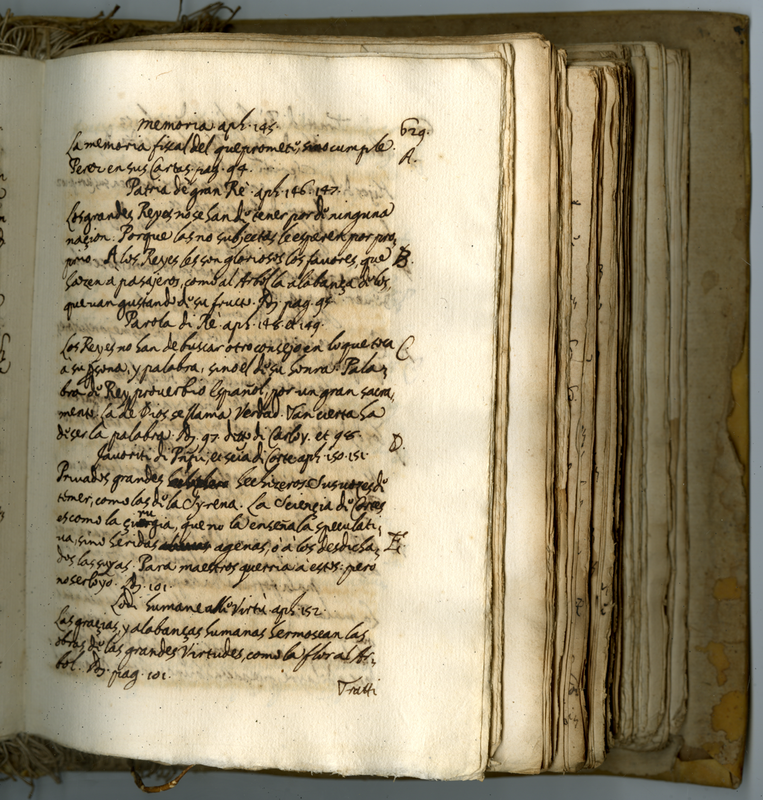 memoria aph. 145.
629.
La memoria fiscal del que promete, sino cumple.
A.
Perez en sus Cartas. pag. 94.
Patria de gran Rè. aph. 146. 147.
Los grandes Reyes no se han de tener por de ninguna
nacion. Porque las no subjectas le esperen por pro,
prio. A los Reyes les son gloriosos los favores, que
B.
hazen a pasajeros, como al Arbol la alabança de los
que van gustando de su fructo. pag. 95
Parola di Rè. aph. 148. et 149.
Los Reyes no han de buscar otro consejo en lo que toca
C.
a su persona, y palabra, sino el de su honra. Pala,
bra de Rey, proverbio Español, por un gran sacra,
mento. La de Dios se llama Verdad. Tan cierta ha
de ser la palabra. 97. detto di Carlo V. et 98.
D.
favoriti di Pñpi, et scia di Corte aph. 150. 151.
Privados grandes hechizeros. Sus votes de
temer, como las de la Syrena. La Sciencia de Cortes
es como la çirurgia, que no la enseña la speculati,
va, sino heridas agenas, ò a los desdicha,
E.
dos las suyas. Para maestros querria a estos: pero
no ser lo yo. 101.
Lodi humane alle Virtù aph. 152.
Las graçias, y alabanças humanas hermosean las
obras de las grandes Virtudes, como la flor al Ar,
bol. pag. 101.
Tratti